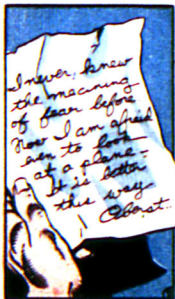 I never knew
the meaning
of fear before
Now I am afraid
even to look
at a plane -
It is better
this way
Oberst..